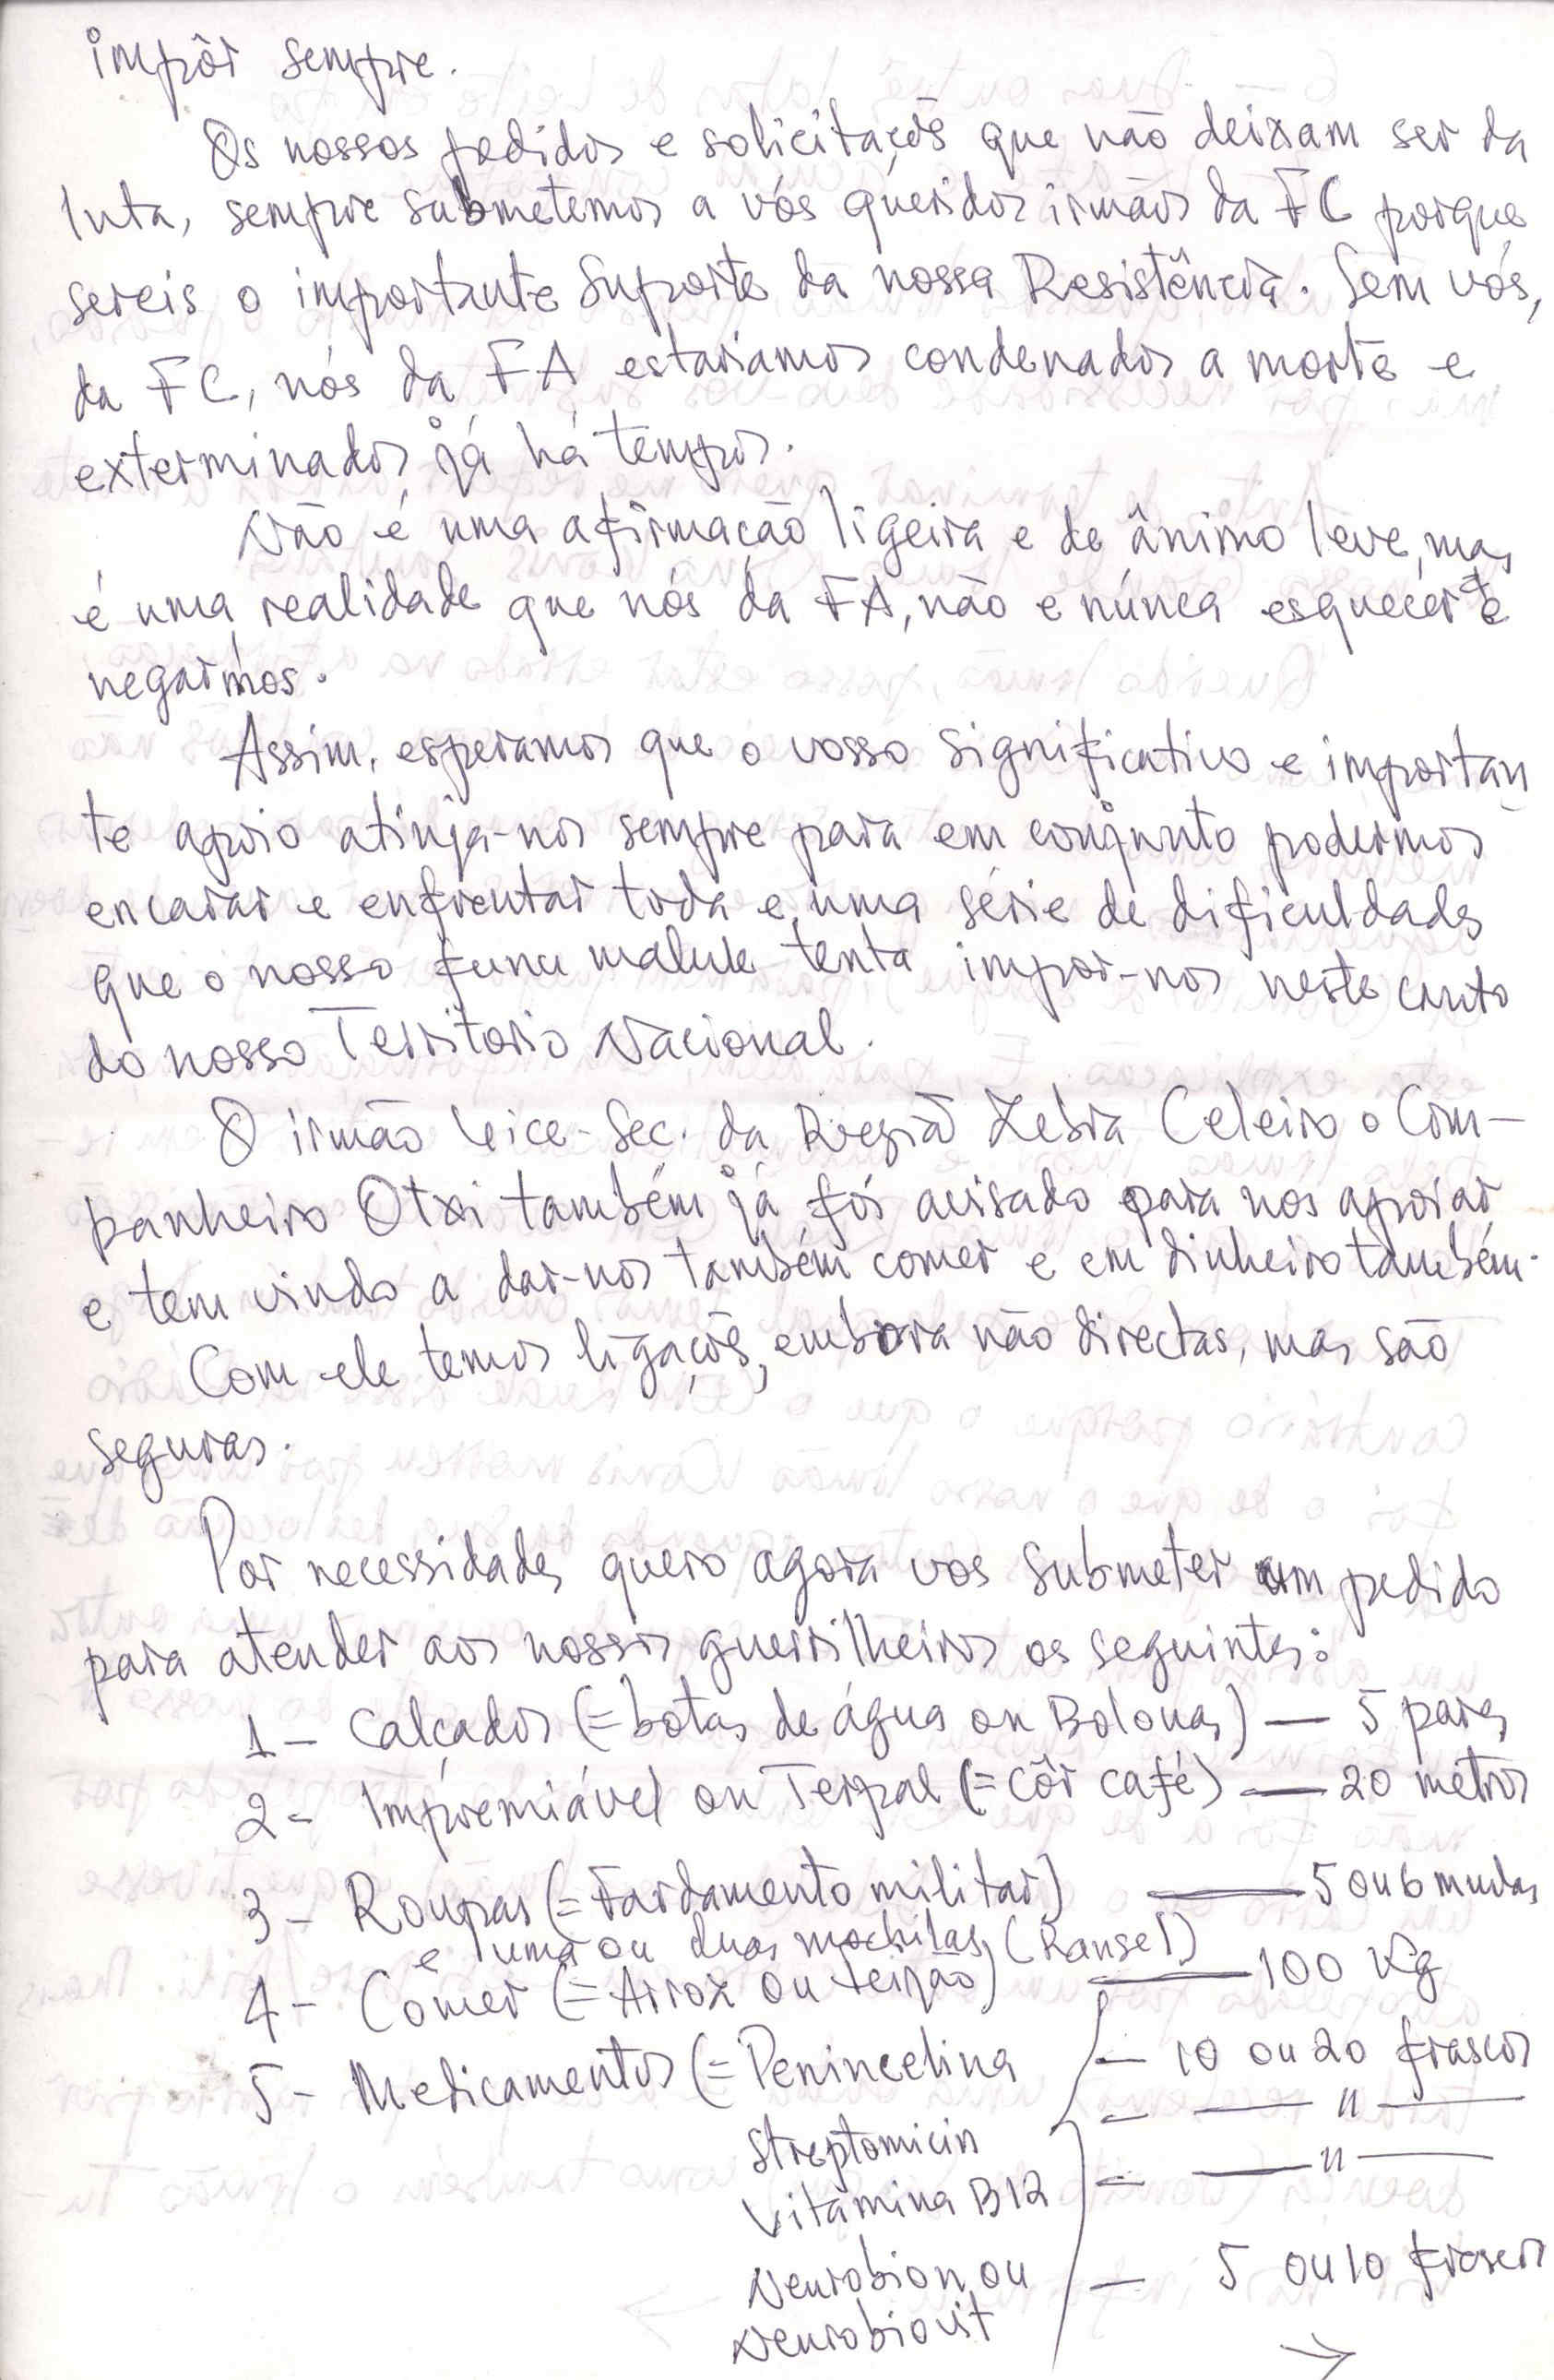 impôr sempre.
Os nossos pedidos e solicitaçõs que não deixam ser da
luta, sempre submetemos a vós queridos irmãos da FC porque
sereis o importante Suporte da nossa Resistência. Sem vós,
da FC, nós da FA estariamos condenados a morte e
exterminados já há tempos.
Não é uma afirmação ligeira e de ânimo leve, mas
é uma realidade que nós da FA, não e núnca esquecér e
negarmos.
Assim, esperamos que o vosso significativo e importan
te apoio atinja-nos sempre para em conjunto podermos
encarar e enfrentar toda e uma série de dificuldades
que o nosso funu maluk tenta impor-nos neste canto
do nosso Territorio Nacional.
O irmão Vice-Sec. da Região Zebra Celeiro o Com-
panheiro Otxi também já foi avisado para nos apoiar
e tem vindo a dar-nos também comer e em dinheiro também.
Com ele temos ligaçõs, embora não directas, mas são
seguras.
Por necessidade, quero agora vos submeter um pedido
para atender aos nossos guerrilheiros os seguintes:
1- Calçados (= botas de água ou Bolonas) — 5 pares
2- Impremiável ou Terpal (= côr café) — 20 metros
3- Roupas (= Fardamento militar) — 5 ou 6 mudas
e uma ou duas mochilas (Ransel)
4- Comer (= Arroz ou feijão) — 100 Kg
5- Medicamentos (= Penincelina — 10 ou 20 frascos
Streptomicin — — " —
Vitamina B12 — — " —
Neurobion ou — 5 ou 10 frascos
Neurobiovit
→